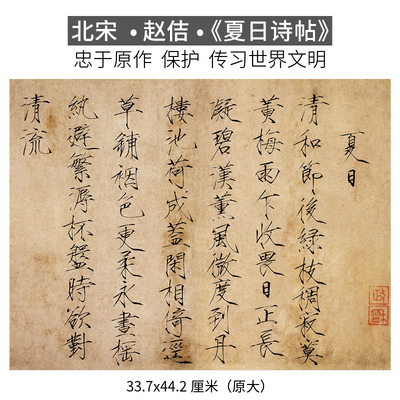 北宋 • 赵佶 •《夏日诗帖》
忠于原作 保护 传习世界文明
夏日
清和節後綠枝稠寂寞
黃梅雨乍收畏日正長
凝碧漢薰風微度到丹
樓池荷成蓋閑相倚逕
草鋪裀色更柔永晝搖
紈避繁溽杯盤時欲對
清流
33.7x44.2 厘米（原大）